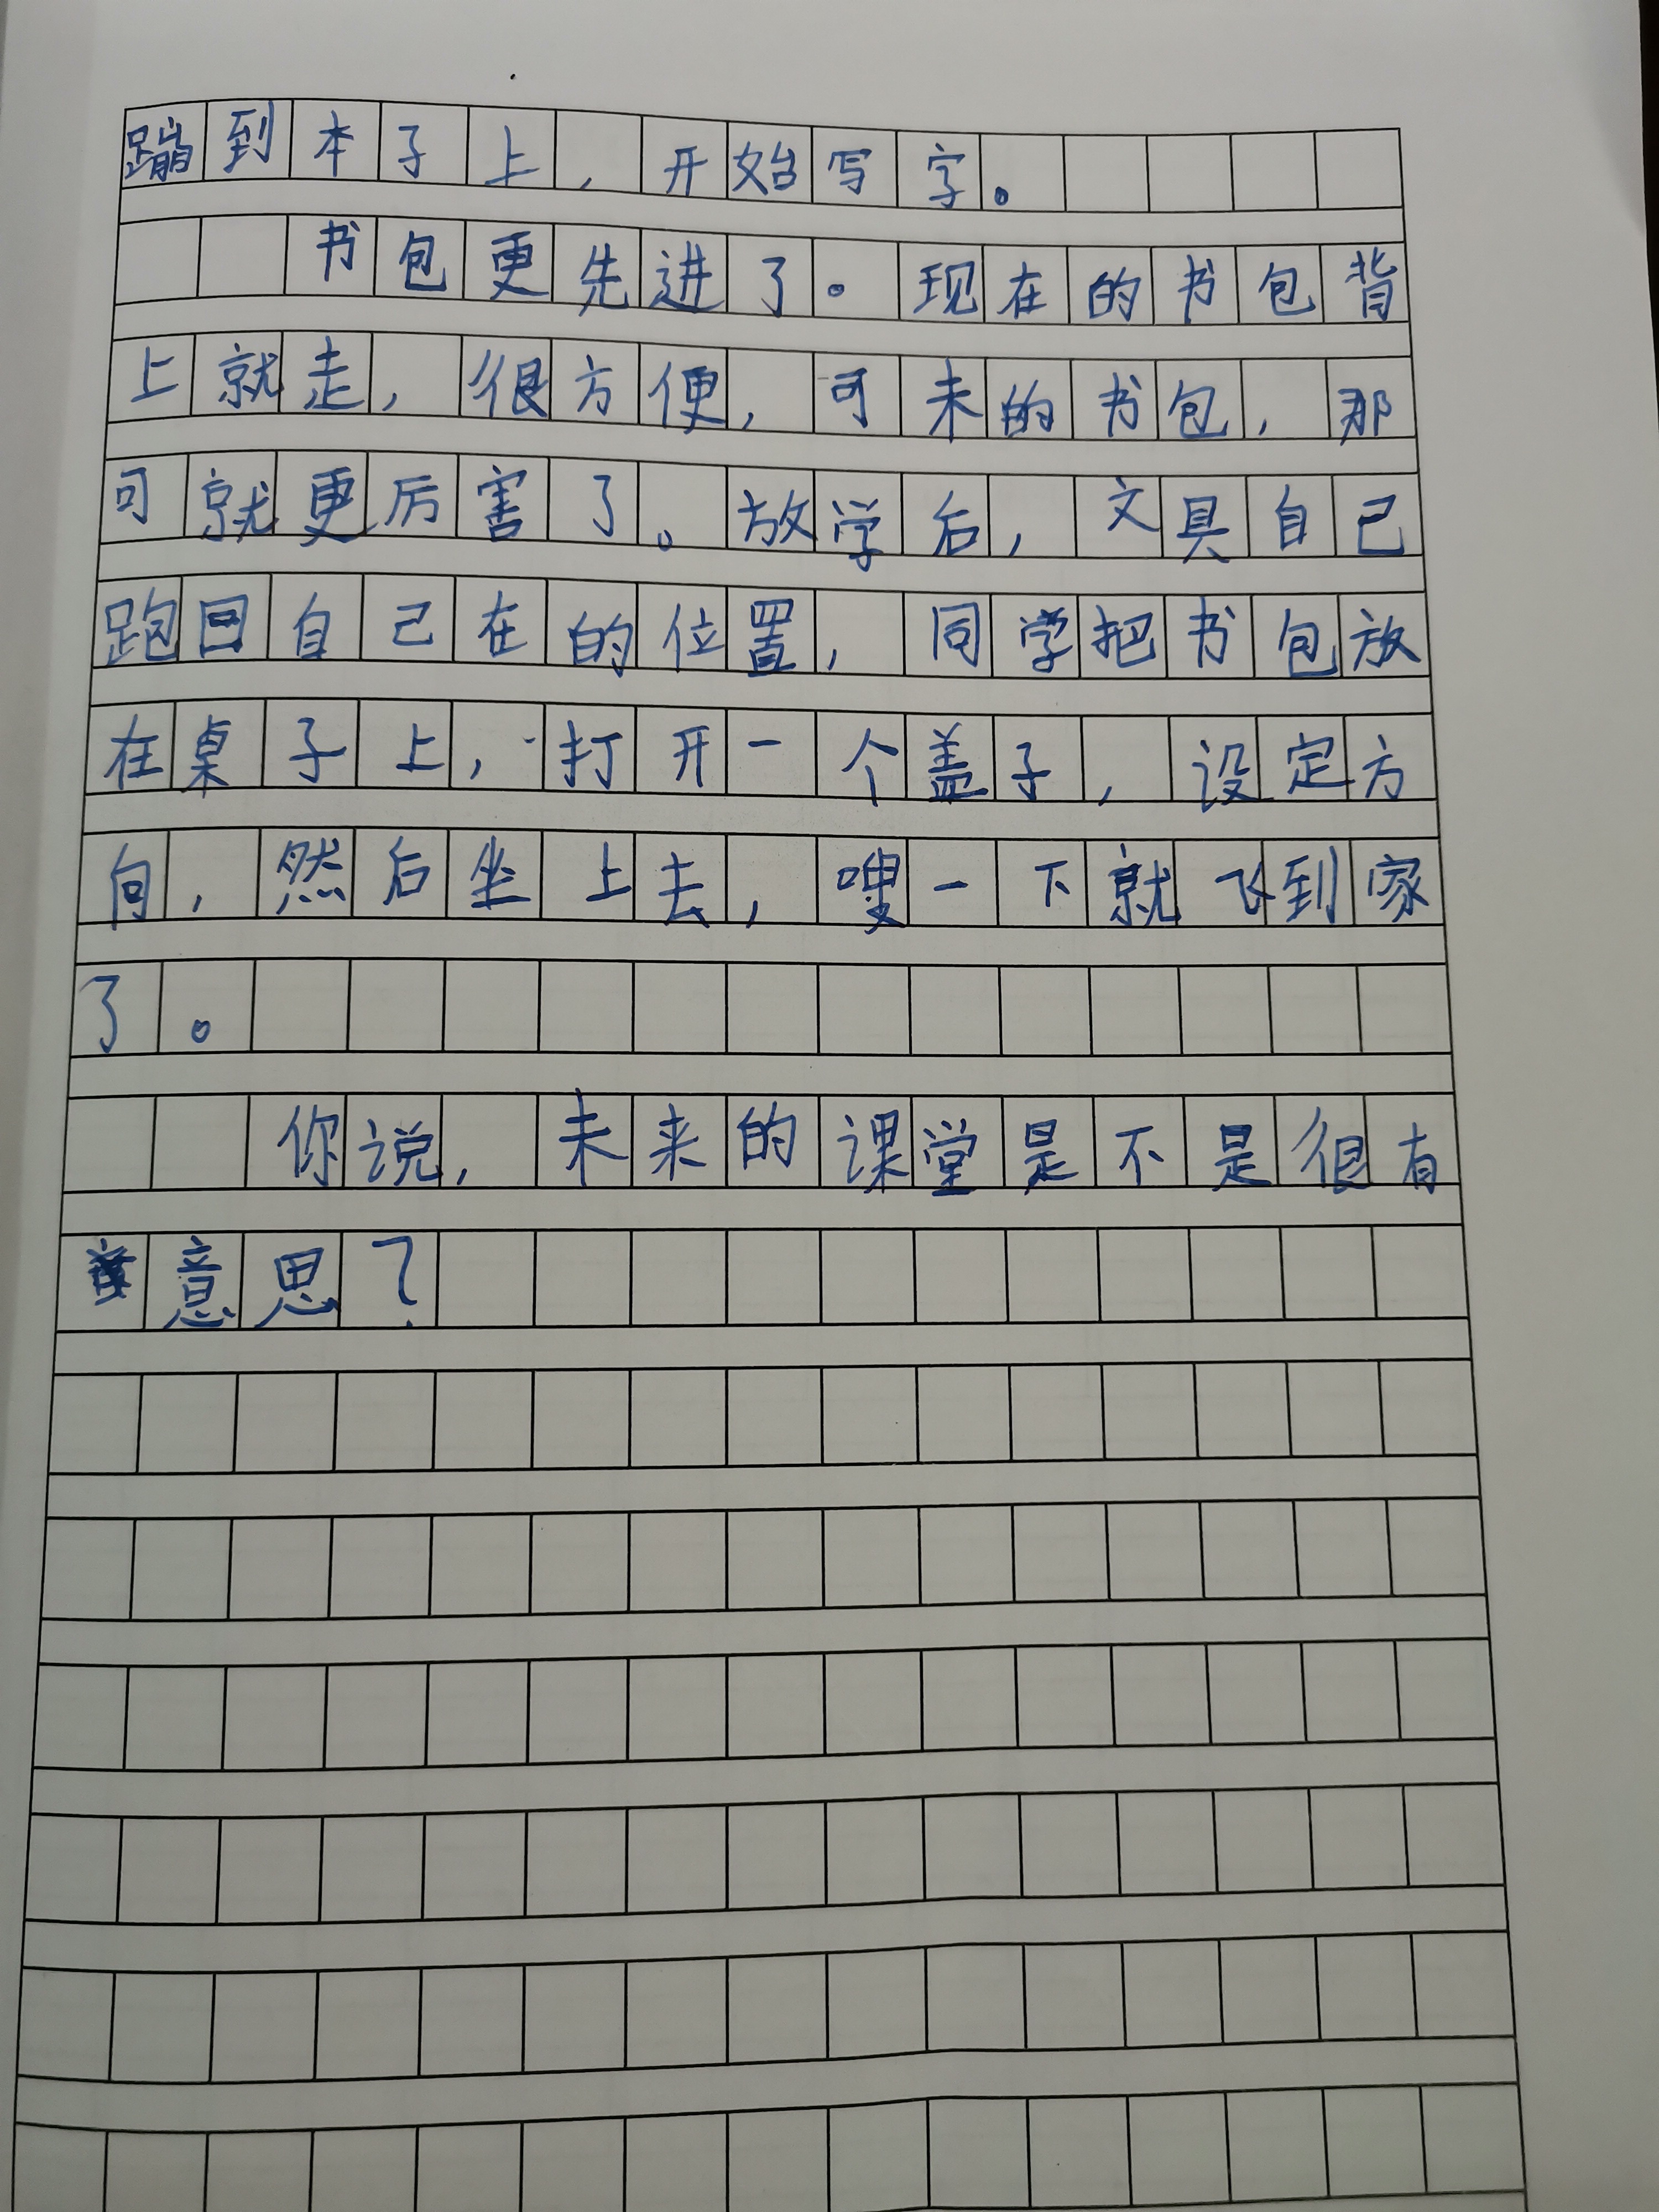 蹦到本子上，开始写字。
书包更先进了。现在的书包背
上就走，很方便，可未的书包，那
可就更厉害了。放学后，文具自己
跑回自己在的位置，同学把书包放
在桌子上，打开一个盖子，设定方
向，然后坐上去，嗖一下就飞到家
了。
你说，未来的课堂是不是很有
意思？